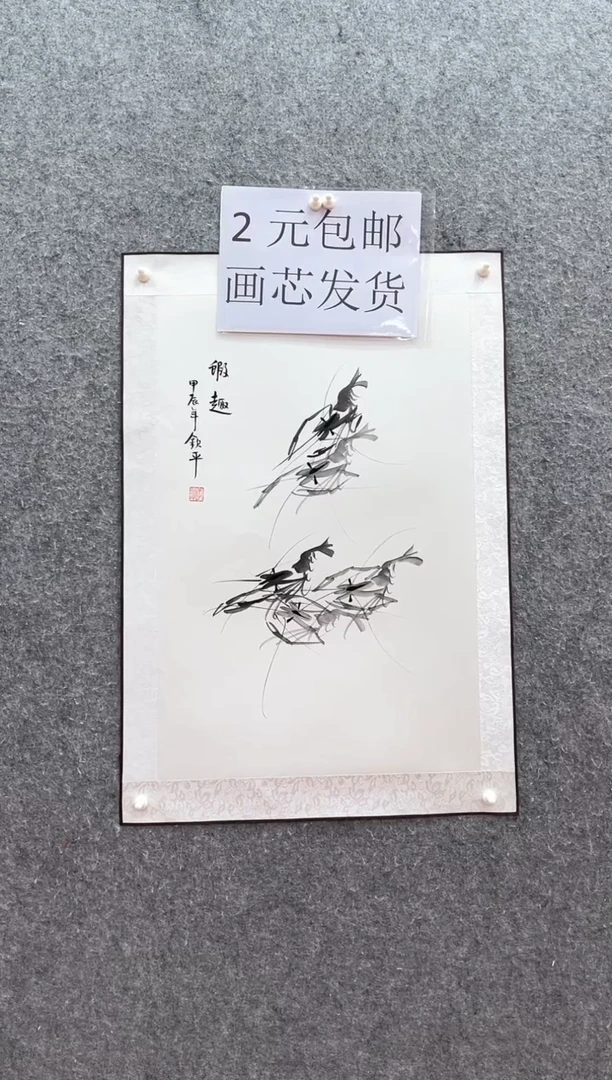 2元包邮
画芯发货
虾趣
甲辰年钦平